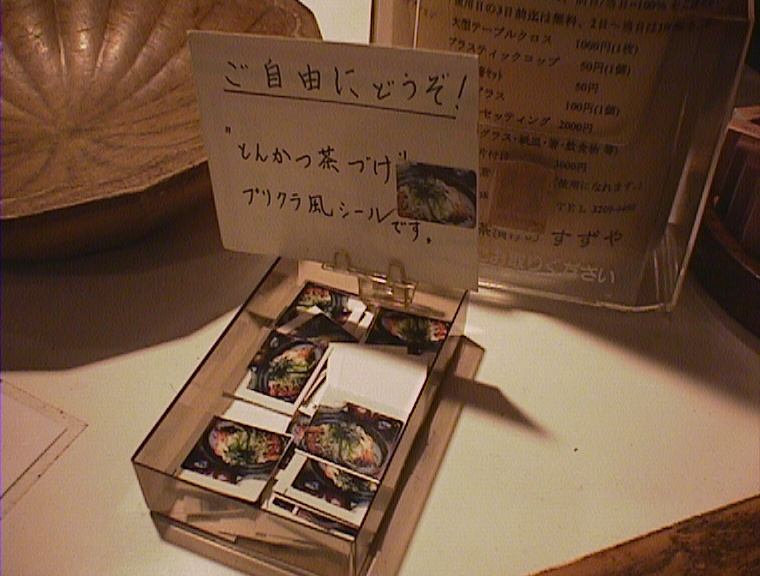 ご自由にどうぞ!
"とんかつ茶づけ"
プリクラ風シール
です。
使用日の3日前迄は無料、2日~当日は
大型テーブルクロス 1000円(1枚)
プラスティックコップ 50円(1個)
50円
グラス 100円(1個)
セッティング 2000円
グラス・紙皿・箸・飲食物 等)
3000円
使用になれます。)
TEL 3209-
すずや
お取りください